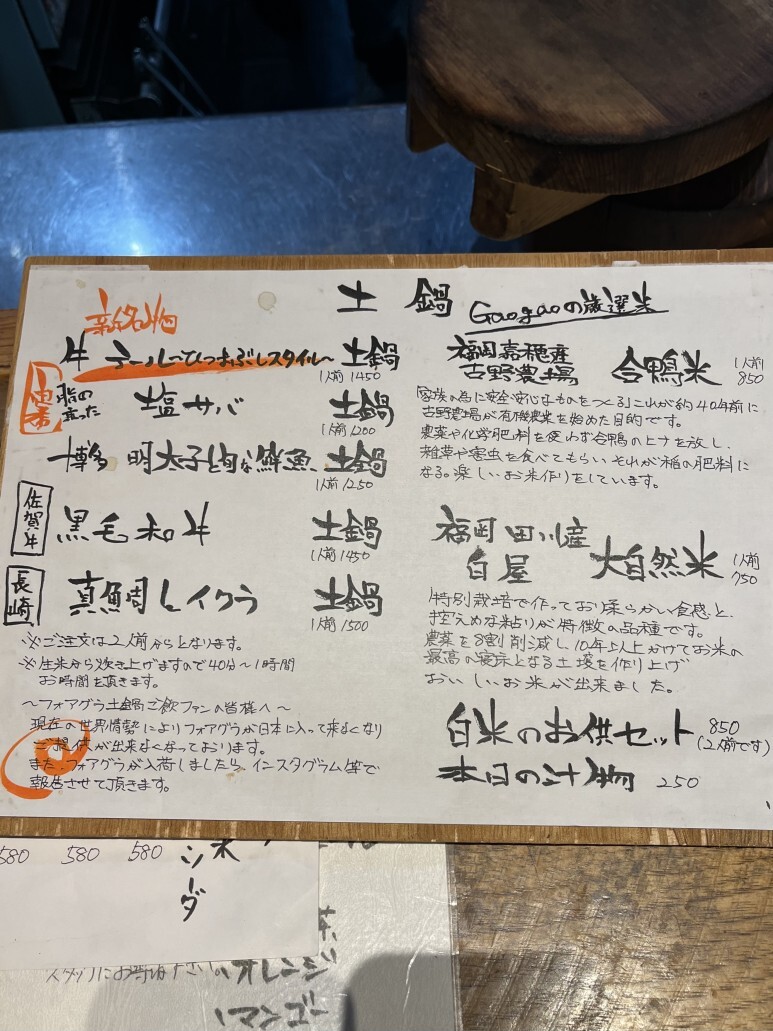 土鍋
Gaogaoの厳選米
新名物
牛テール〜ひつまぶしスタイル〜 土鍋
1人前 1450
脂の
立った
塩サバ 土鍋
1人前 1200
博多 明太子と旬な鮮魚 土鍋
1人前 1250
佐賀牛
黒毛和牛 土鍋
1人前 1450
長崎
真鯛とイクラ 土鍋
1人前 1500
※ご注文は2人前からとなります。
※生米から炊き上げますので40分〜1時間
お時間を頂きます。
〜フォアグラ土鍋ご飯ファンの皆様へ〜
現在の世界情勢によりフォアグラが日本に入って来なくなり
ご提供が出来なくなっております。
また、フォアグラが入荷しましたら、インスタグラム等で
報告させて頂きます。
福岡嘉穂産
古野農場 合鴨米
1人前
850
家族の為に安全安心なものをつくるこれが約40年前に
古野農場が有機農業を始めた目的です。
農薬や化学肥料を使わず合鴨のヒナを放し、
雑草や害虫を食べてもらい それが稲の肥料に
なる。楽しいお米作りをしています。
福岡 田川産
白屋 大自然米
1人前
750
特別栽培で作っており柔らかい食感と、
控えめな粘りが特徴の品種です。
農薬を8割削減し、10年以上かけてお米の
最高の寝床となる土壌を作り上げ
おいしいお米が出来ました。
白米のお供セット 850
(2人前です)
本日の汁物 250
580 580 580
ンーダ
米
スタッフにお尋ね下さい。
オレンジ
マンゴー